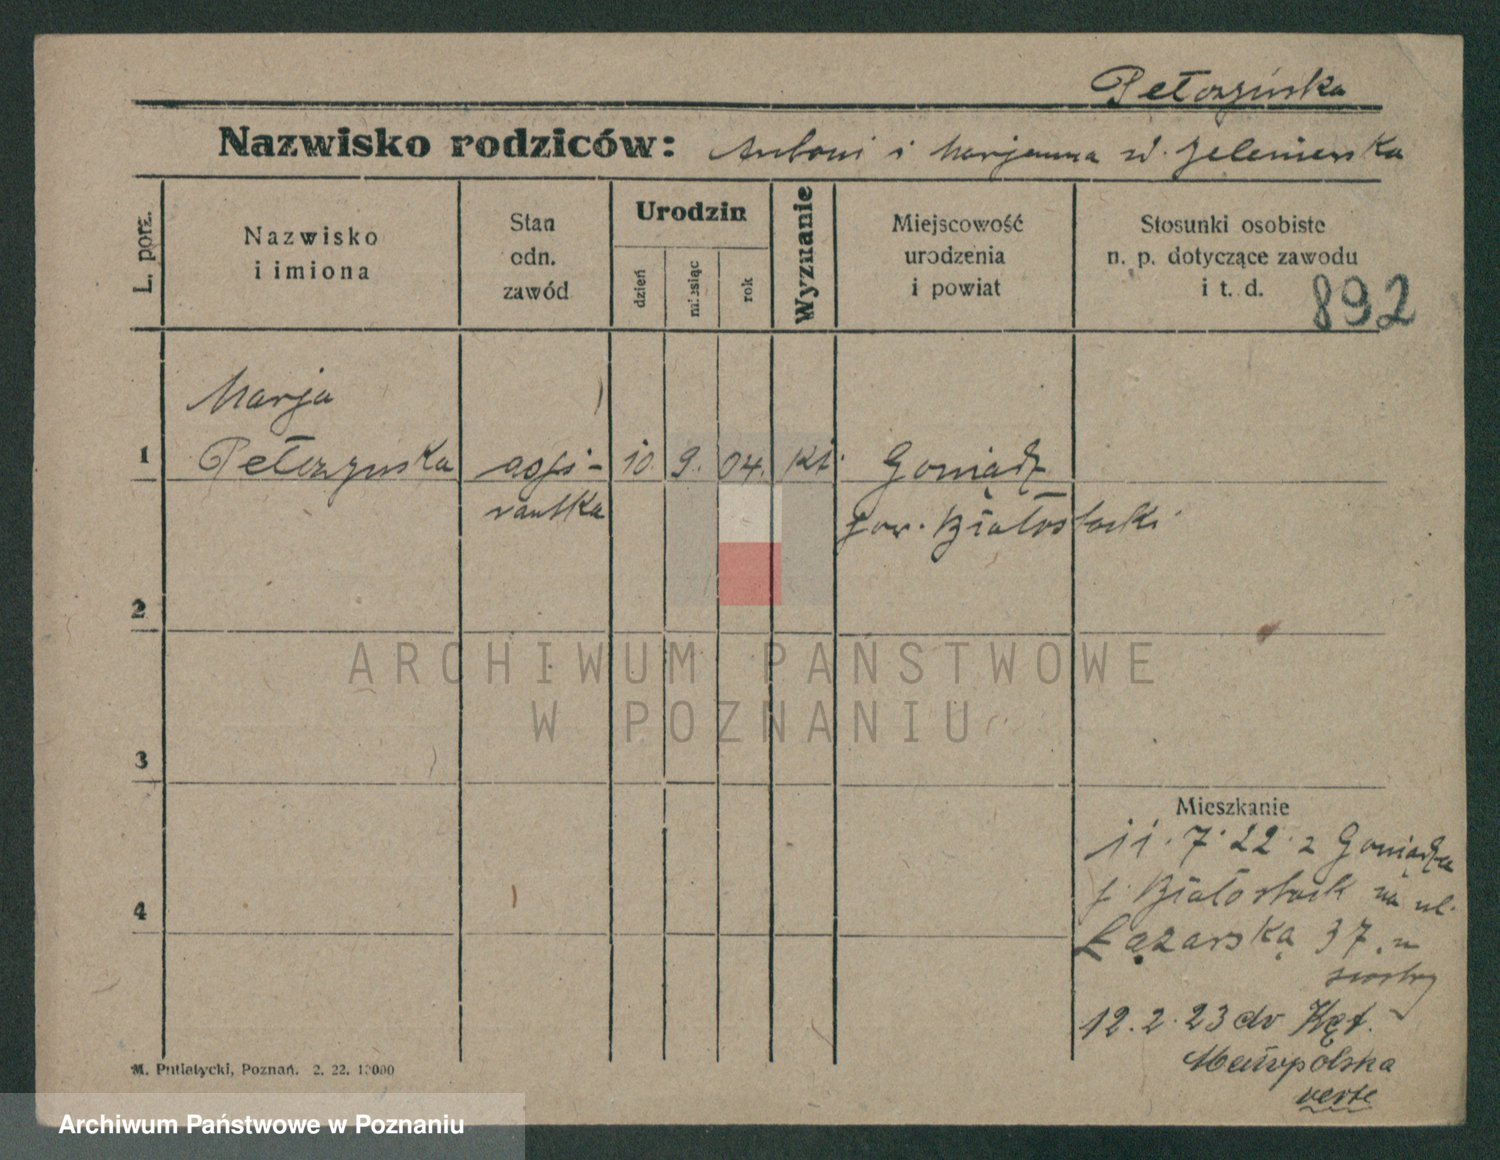 Pełczyńska
Nazwisko rodziców: Antoni i Marjanna z d. Zeleniewska
L. porz.
Nazwisko
i imiona
Stan
odn.
zawód
Urodzin
dzień
miesiąc
rok
Wyznanie
Miejscowość
urodzenia
i powiat
Stosunki osobiste
n. p. dotyczące zawodu
i t. d.
892
Marja
1 Pełczynska aspi- 10. 9. 04. kt. Goniądz
rantka pow. Białostocki
2
ARCHIWUM PAŃSTWOWE
W POZNANIU
3
Mieszkanie
11. 7. 22 z Goniądza
p. Białostock na ul.
4
Łazarską 37. u
siostry
12. 2. 23 do Kęt.
Małopolska
verte
M. Putiatycki, Poznań. 2. 22. 10000
Archiwum Państwowe w Poznaniu